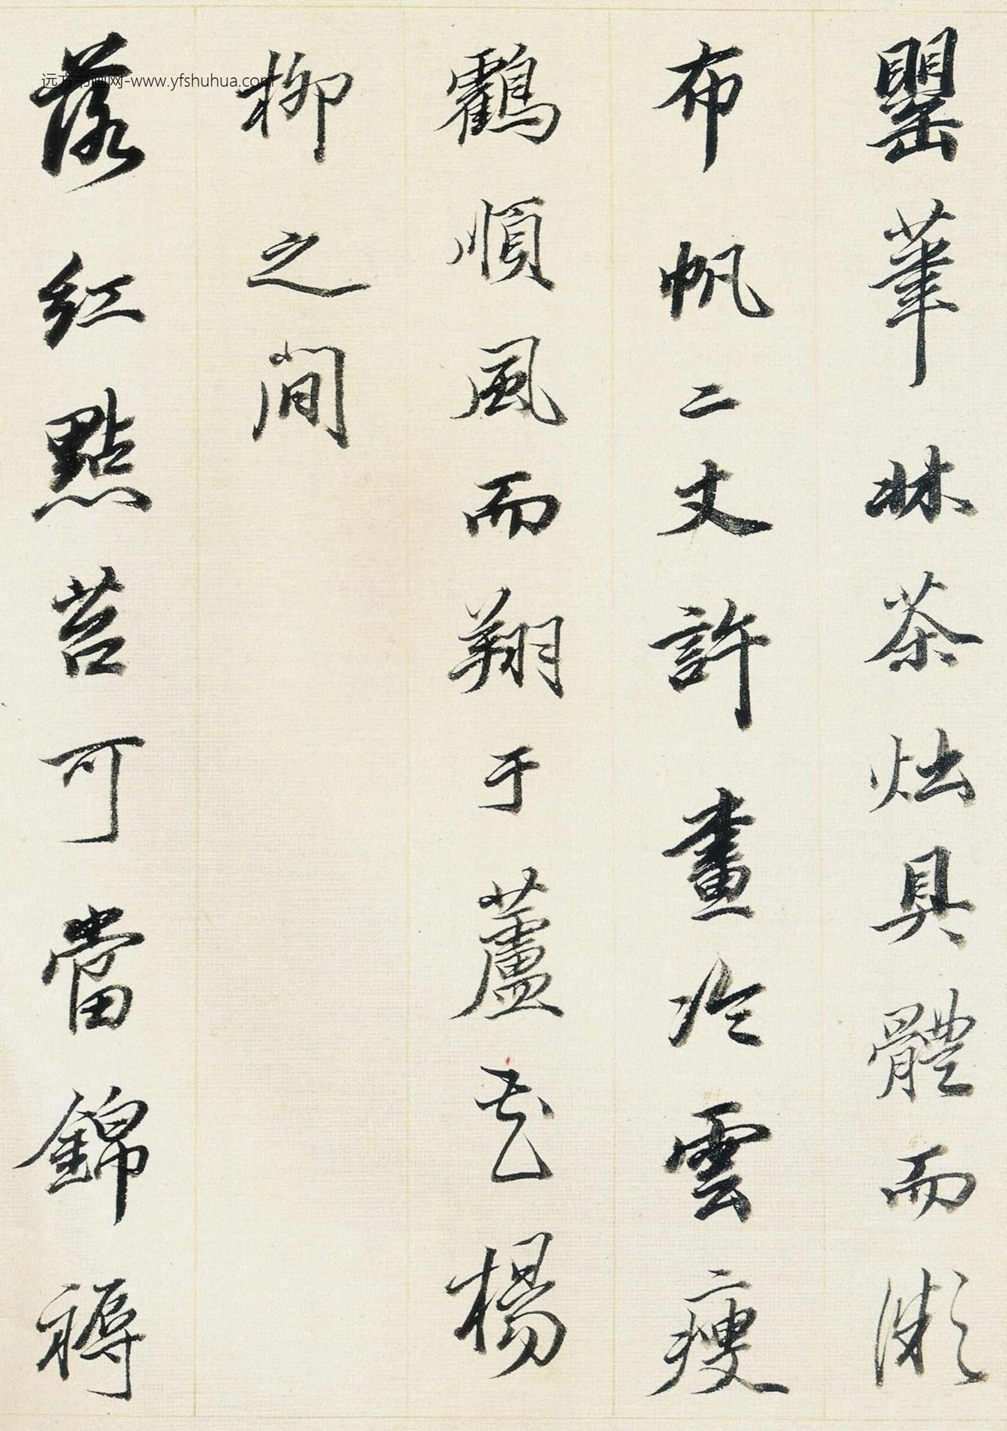 罌筆牀茶炪具體而微
布帆二丈許畫冷雲瘦
鸖順風而翔于蘆花楊
柳之間
落紅點苔可當錦褥
-www.yfshuhua.com